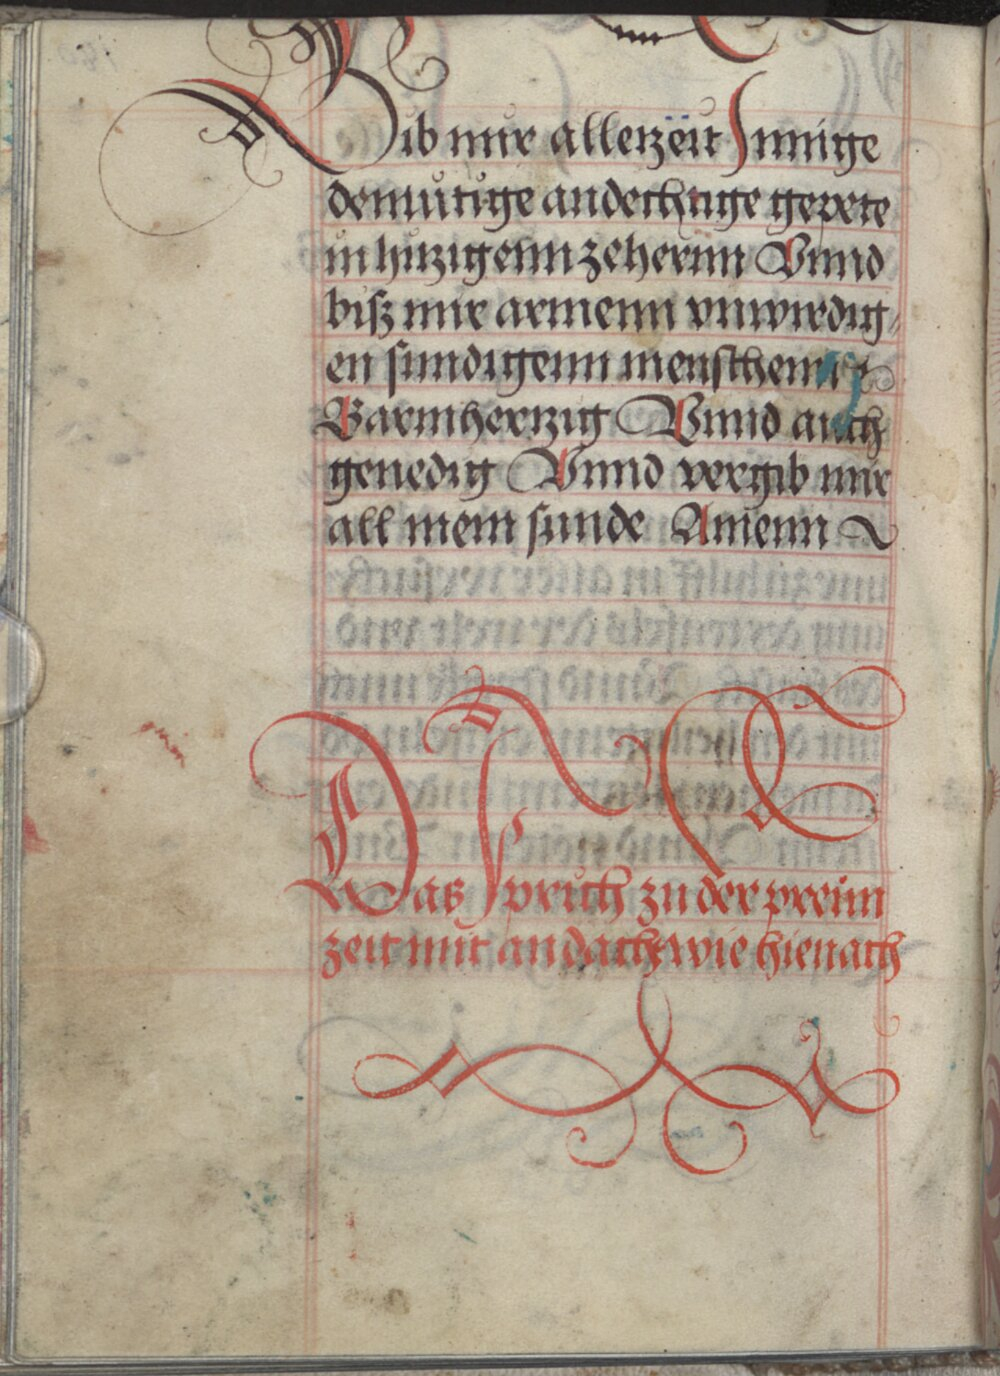 Gib mir allerzeit Jnnige
demuͤtige andechtige gepete
in hitzigenn zehernn Vnnd
bisz mir armenn vnwirdig-
en sundigenn menschenn
Barmhertzig Vnnd auch
genedig Vnnd vergib mir
all mein sunde Amenn
Das sprich zu der preim
zeit mit andacht wie hienach